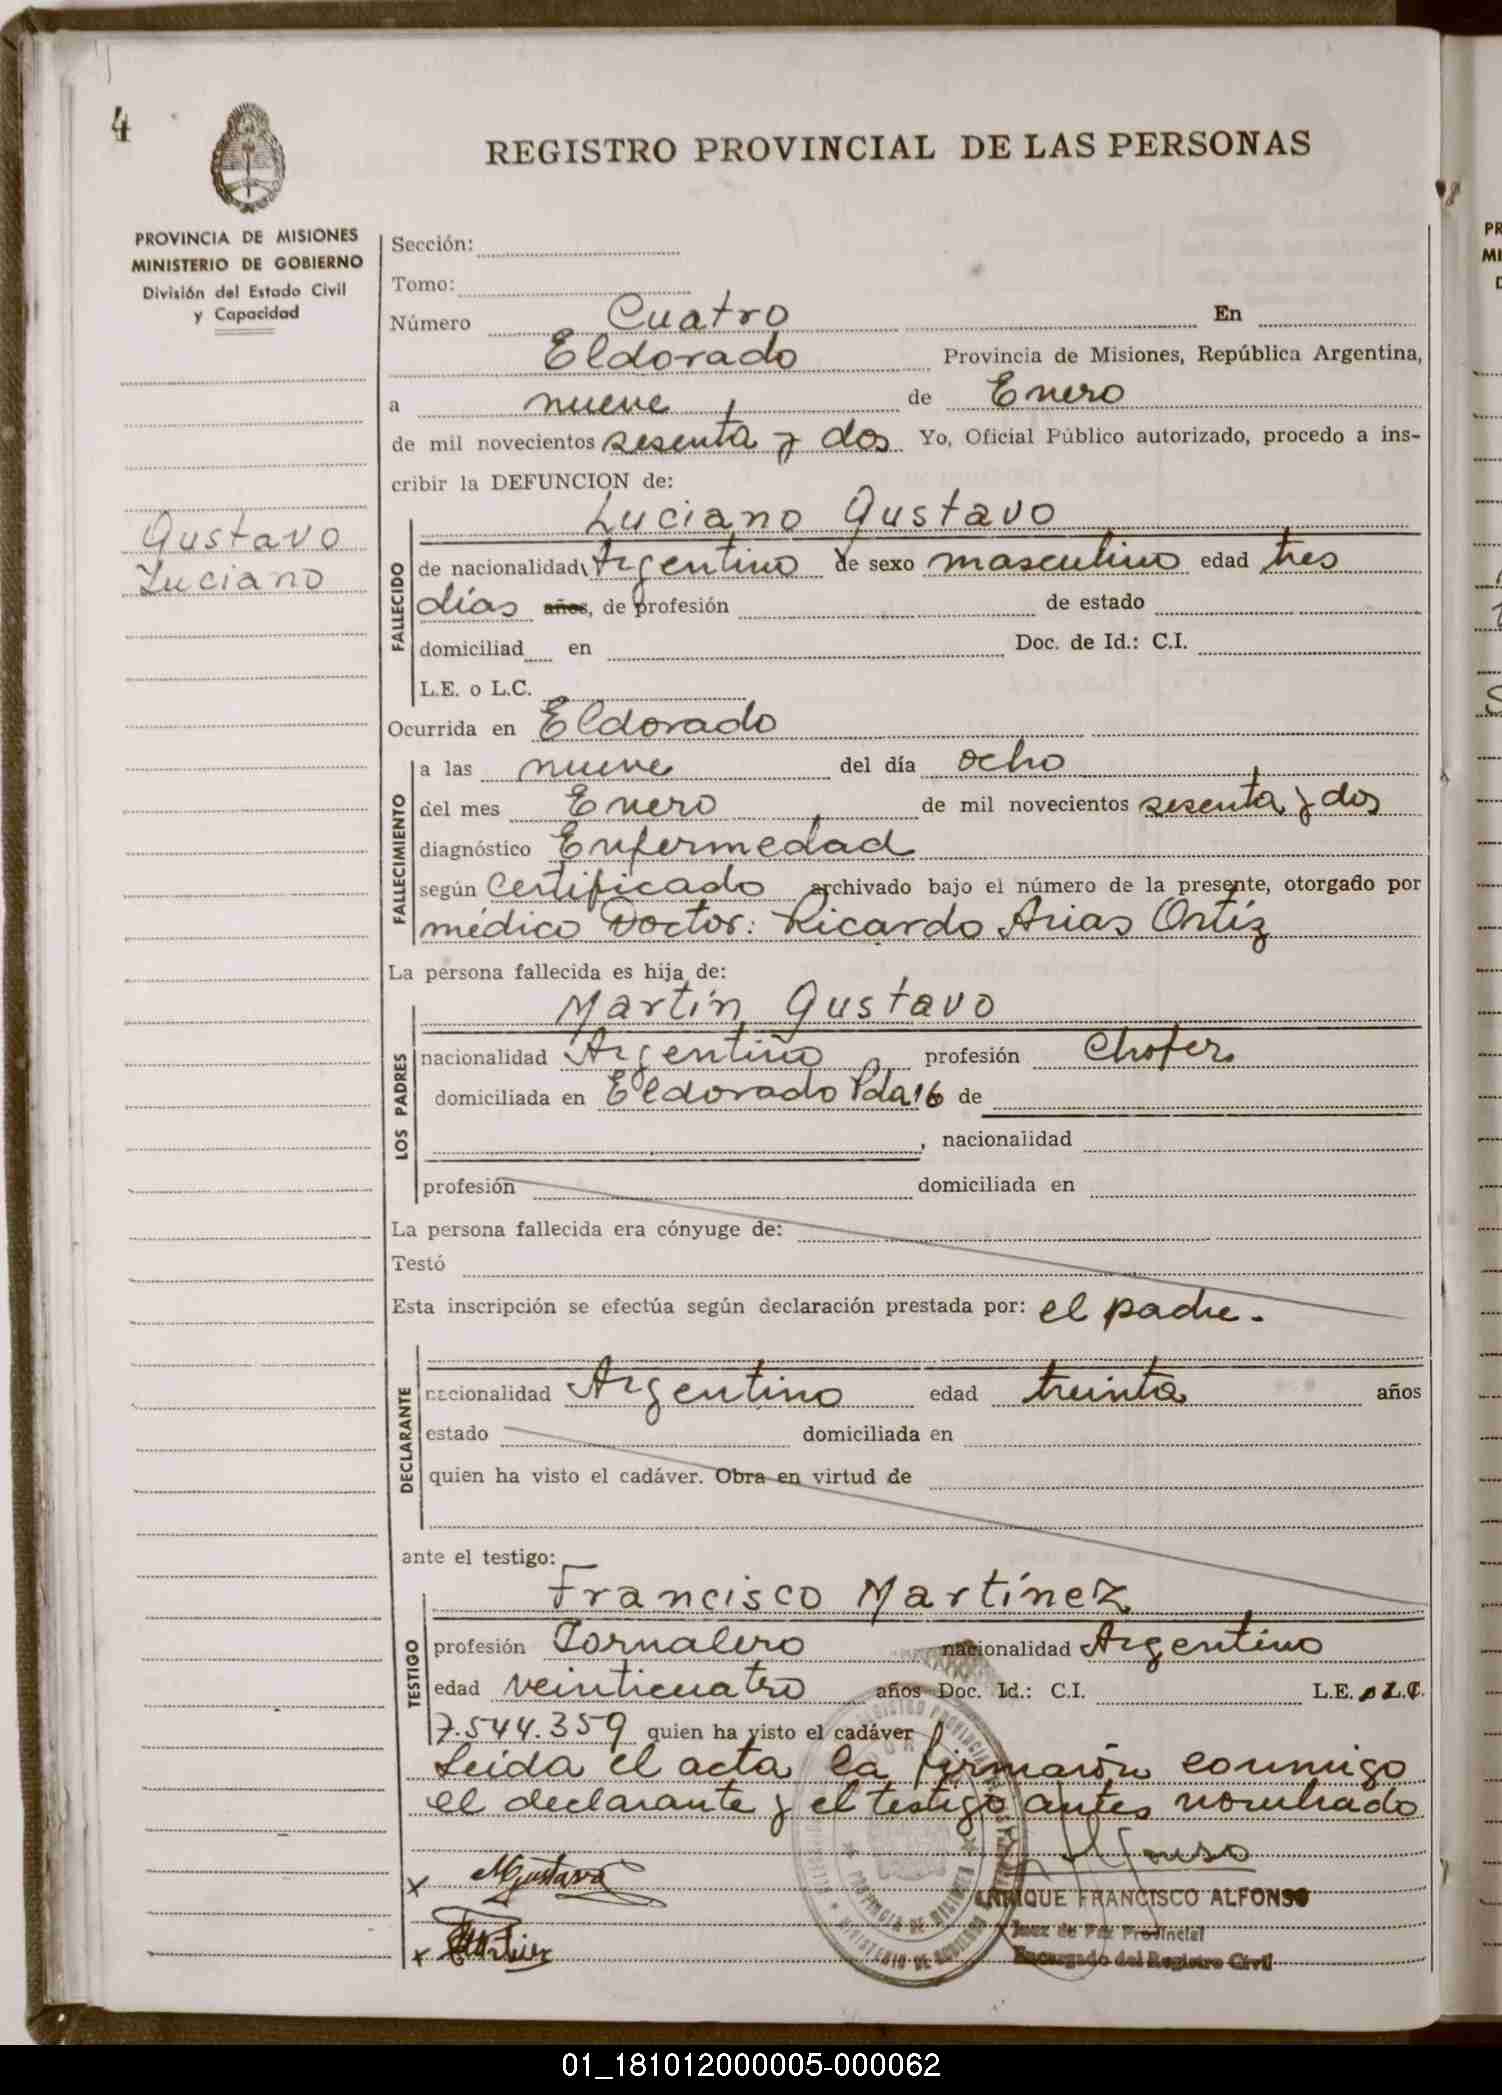 4
REGISTRO PROVINCIAL DE LAS PERSONAS
PROVINCIA DE MISIONES
MINISTERIO DE GOBIERNO
División del Estado Civil
y Capacidad
Gustavo
Luciano
Sección:
Tomo:
Número Cuatro En
Eldorado Provincia de Misiones, República Argentina,
a nueve de Enero
de mil novecientos sesenta y dos Yo, Oficial Público autorizado, procedo a ins-
cribir la DEFUNCION de:
Luciano Gustavo
FALLECIDO
de nacionalidad Argentino de sexo masculino edad tres
días años, de profesión de estado
domiciliad en Doc. de Id.: C.I.
L.E. o L.C.
Ocurrida en Eldorado
FALLECIMIENTO
a las nueve del día ocho
del mes Enero de mil novecientos sesenta y dos
diagnóstico Enfermedad
según Certificado archivado bajo el número de la presente, otorgado por
médico Doctor: Ricardo Arias Ortíz
La persona fallecida es hija de:
Martín Gustavo
LOS PADRES
nacionalidad Argentino profesión Chofer
domiciliada en Eldorado Pda 16 de
, nacionalidad
profesión domiciliada en
La persona fallecida era cónyuge de:
Testó
Esta inscripción se efectúa según declaración prestada por: el padre.
DECLARANTE
nacionalidad Argentino edad treinta años
estado domiciliada en
quien ha visto el cadáver. Obra en virtud de
ante el testigo:
Francisco Martínez
TESTIGO
profesión Jornalero nacionalidad Argentino
edad veinticuatro años Doc. Id.: C.I. L.E. o L.C.
7.544.359 quien ha visto el cadáver
Leída el acta la firmarón conmigo
el declarante y el testigo antes nombrado
Alfonso
x MGustavo
ENRIQUE FRANCISCO ALFONSO
Juez de Paz Provincial
x
Encargado del Registro Civil
PROVINCIA DE MISIONES
01_181012000005-000062